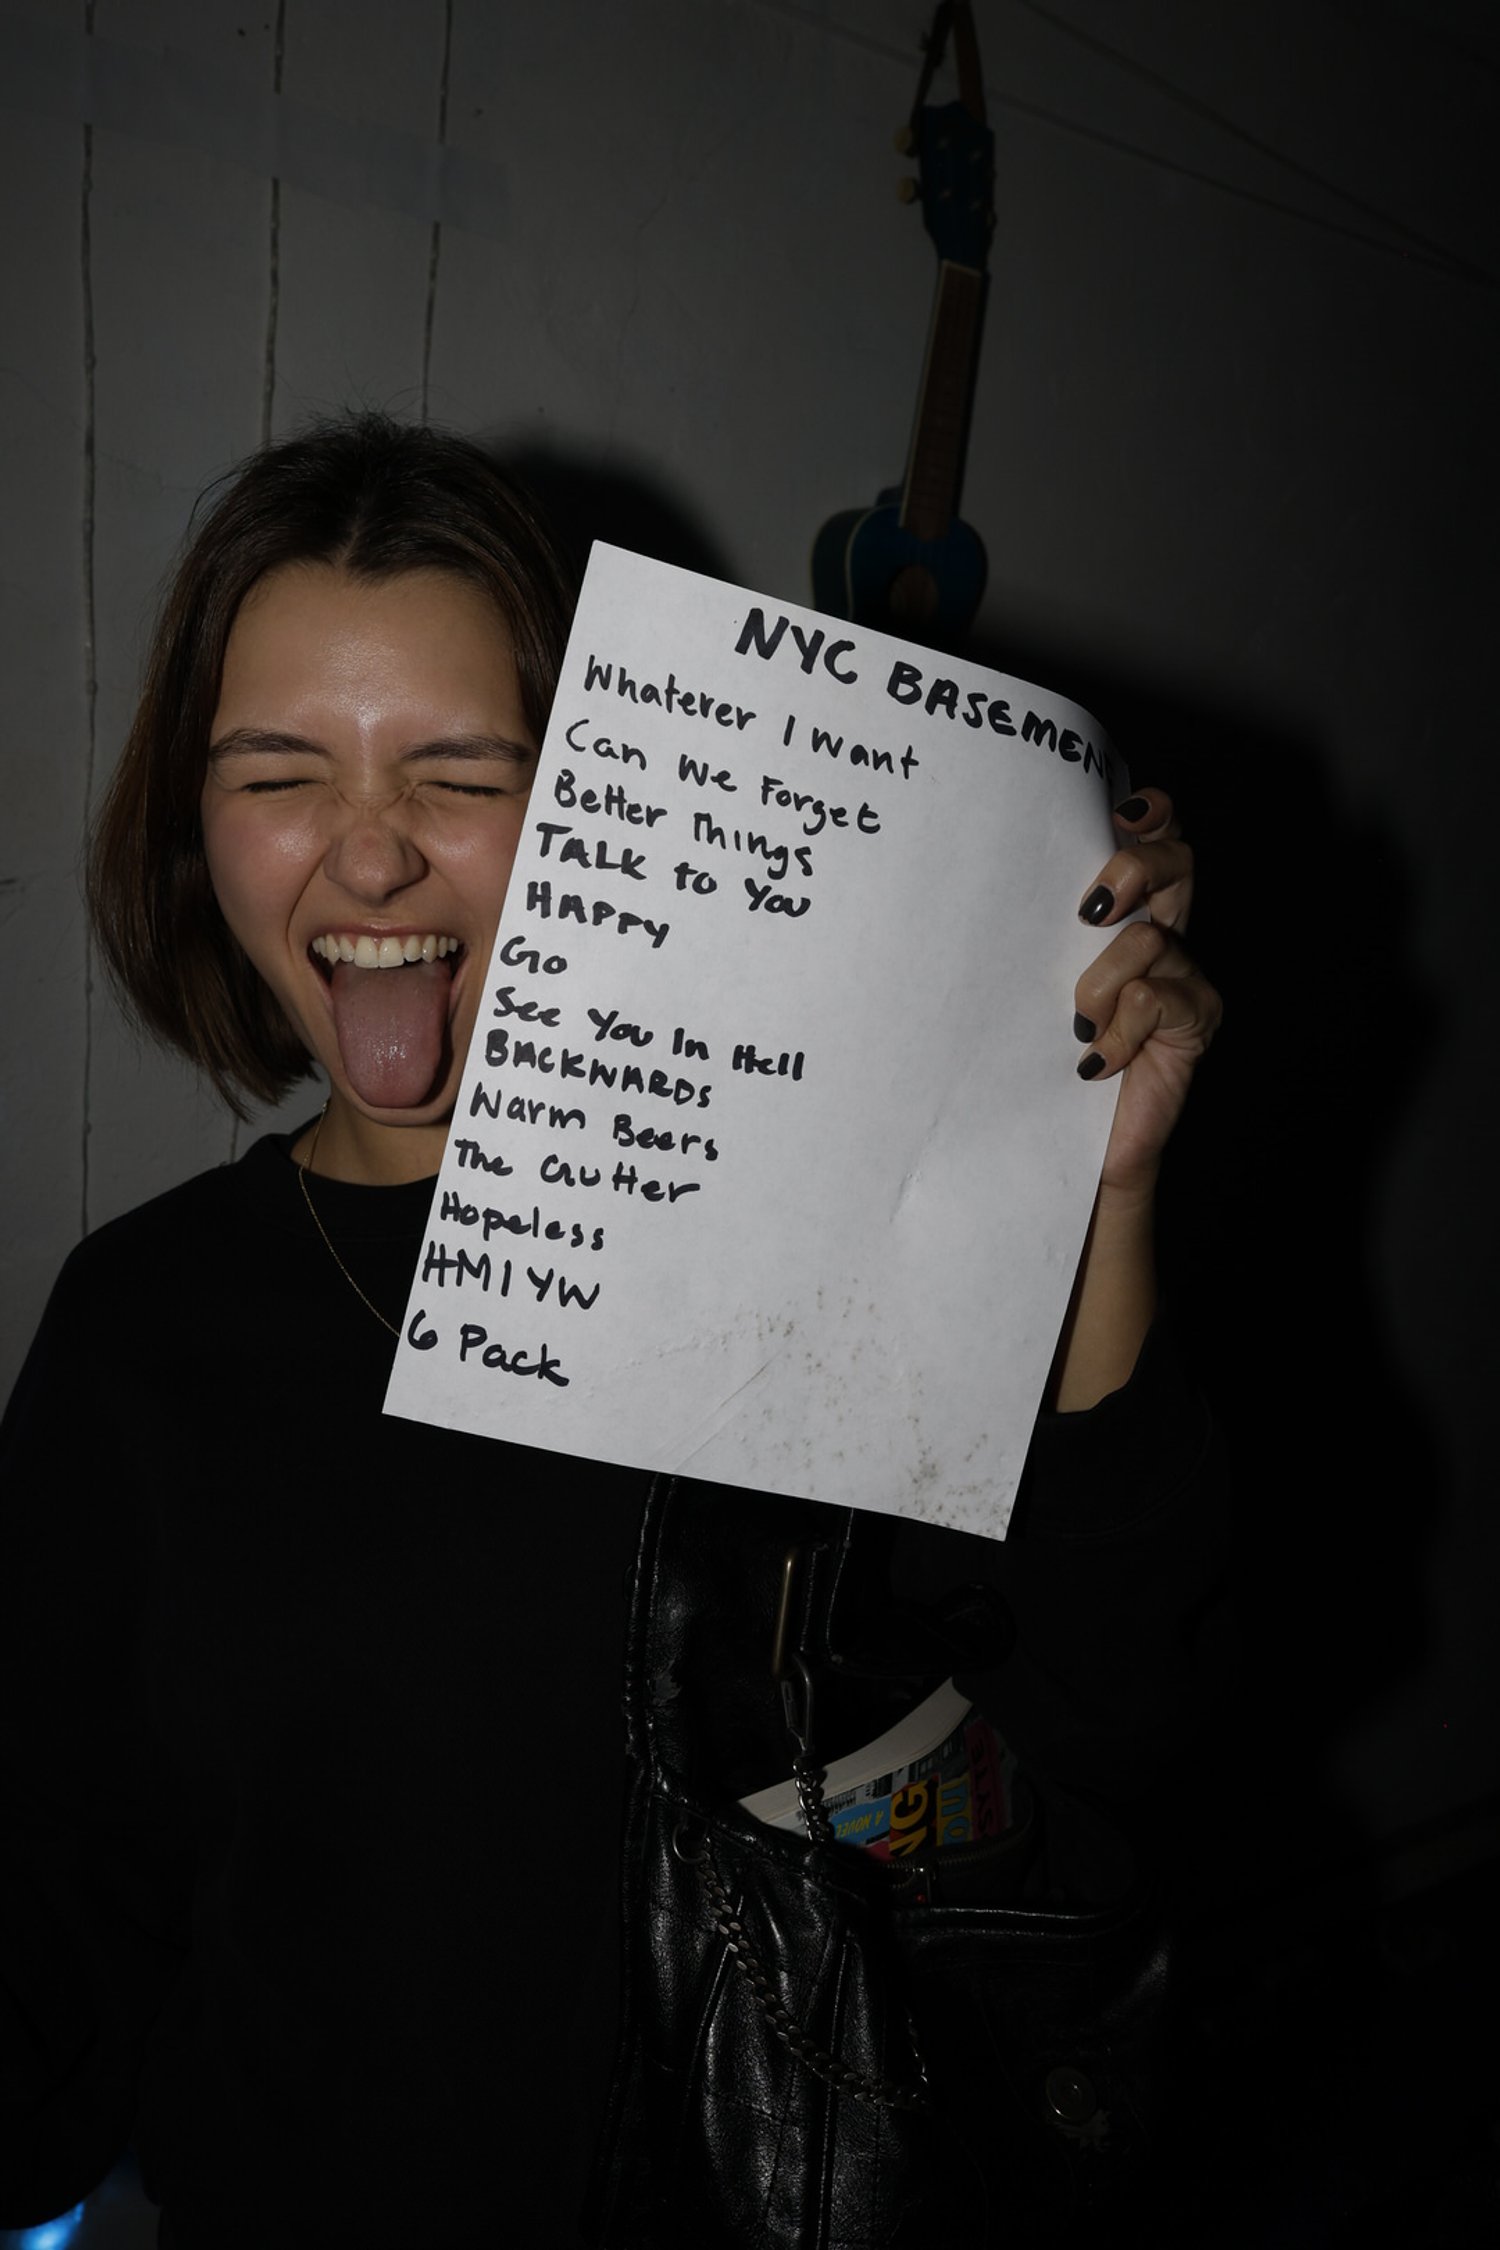 NYC BASEMEN
Whatever I want
Can We Forget
Better Things
TALK to You
HAPPY
Go
See You In Hell
BACKWARDS
Warm Beers
The Gutter
Hopeless
HMIYW
6 Pack
A NOVEL
NG
OUL
SYTE